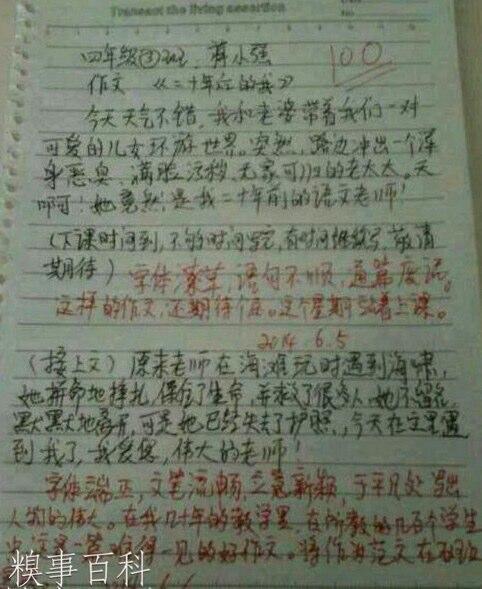 Transcend the living assertion
四年级③班 蒋小强
100
作文 《二十年后的我》
今天天气不错，我和老婆带着我们一对
可爱的儿女环游世界。突然，路边冲出一个浑
身恶臭，满脸污秽，无家可归的老太太。天
啊！她竟然是我二十年前的语文老师！
（下课时间到，不够时间写完，有时间继续写，敬请
期待）
字体潦草，语句不顺，通篇废话。
这样的作文，还期待个屁。这个星期站着上课。
2014 6.5
（接上文）原来老师在海滩玩时遇到海啸，
她拼命地挣扎，保全了生命，并救了很多人，她不留名，
默默地离开，可是她已经失去了护照，今天在这里遇
到我了，我爱您，伟大的老师！
字体端正，文笔流畅，立意新颖，于平凡处写出
人物的伟大。在我几十年的教学里，在所教的几百个学生
难得一见的好作文。将作为范文在
糗事百科